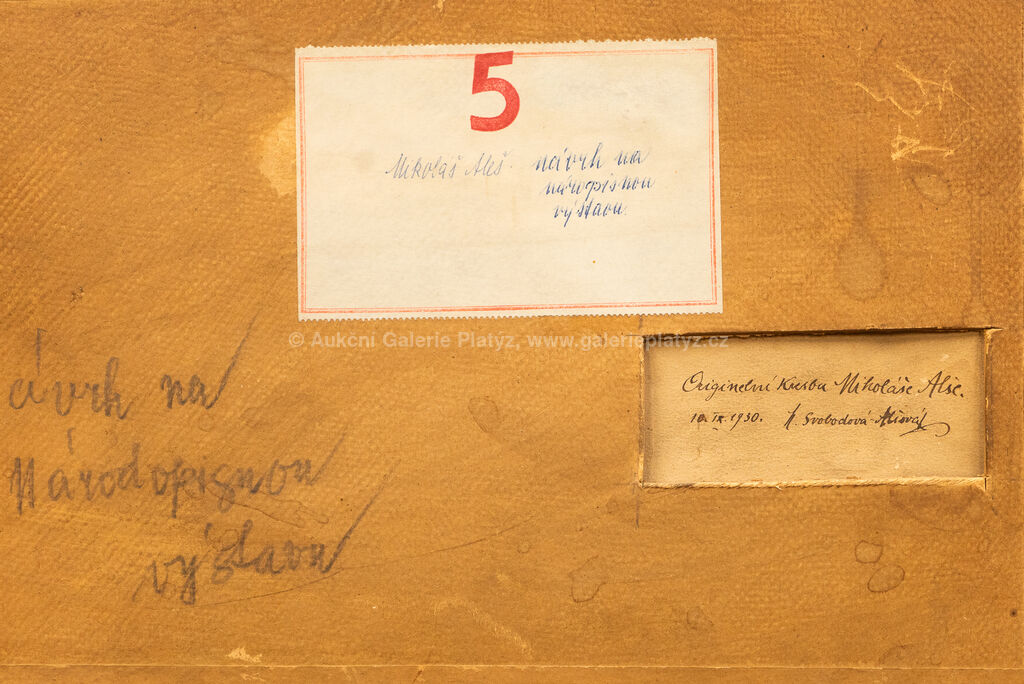 5
Mikoláš Aleš. návrh na
náropisnou
výstavu.
© Aukční Galerie Platýz, www.galerieplatyz.cz
Originelní Kresba Mikoláše Alše.
10. IX. 1930. M. Svobodová-Alšová
ávrh na
Národopisnou
výstavu